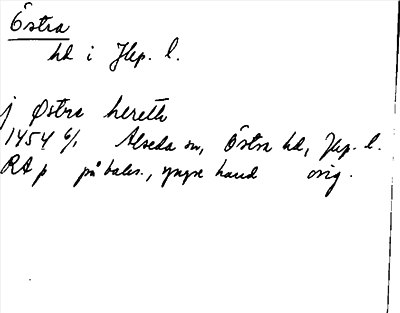 Östra
hd i Jkp. l.
j Østre herette
1454 6/1 Alseda sn, Östra hd, Jkp. l.
RA p på baks., yngre hand orig.